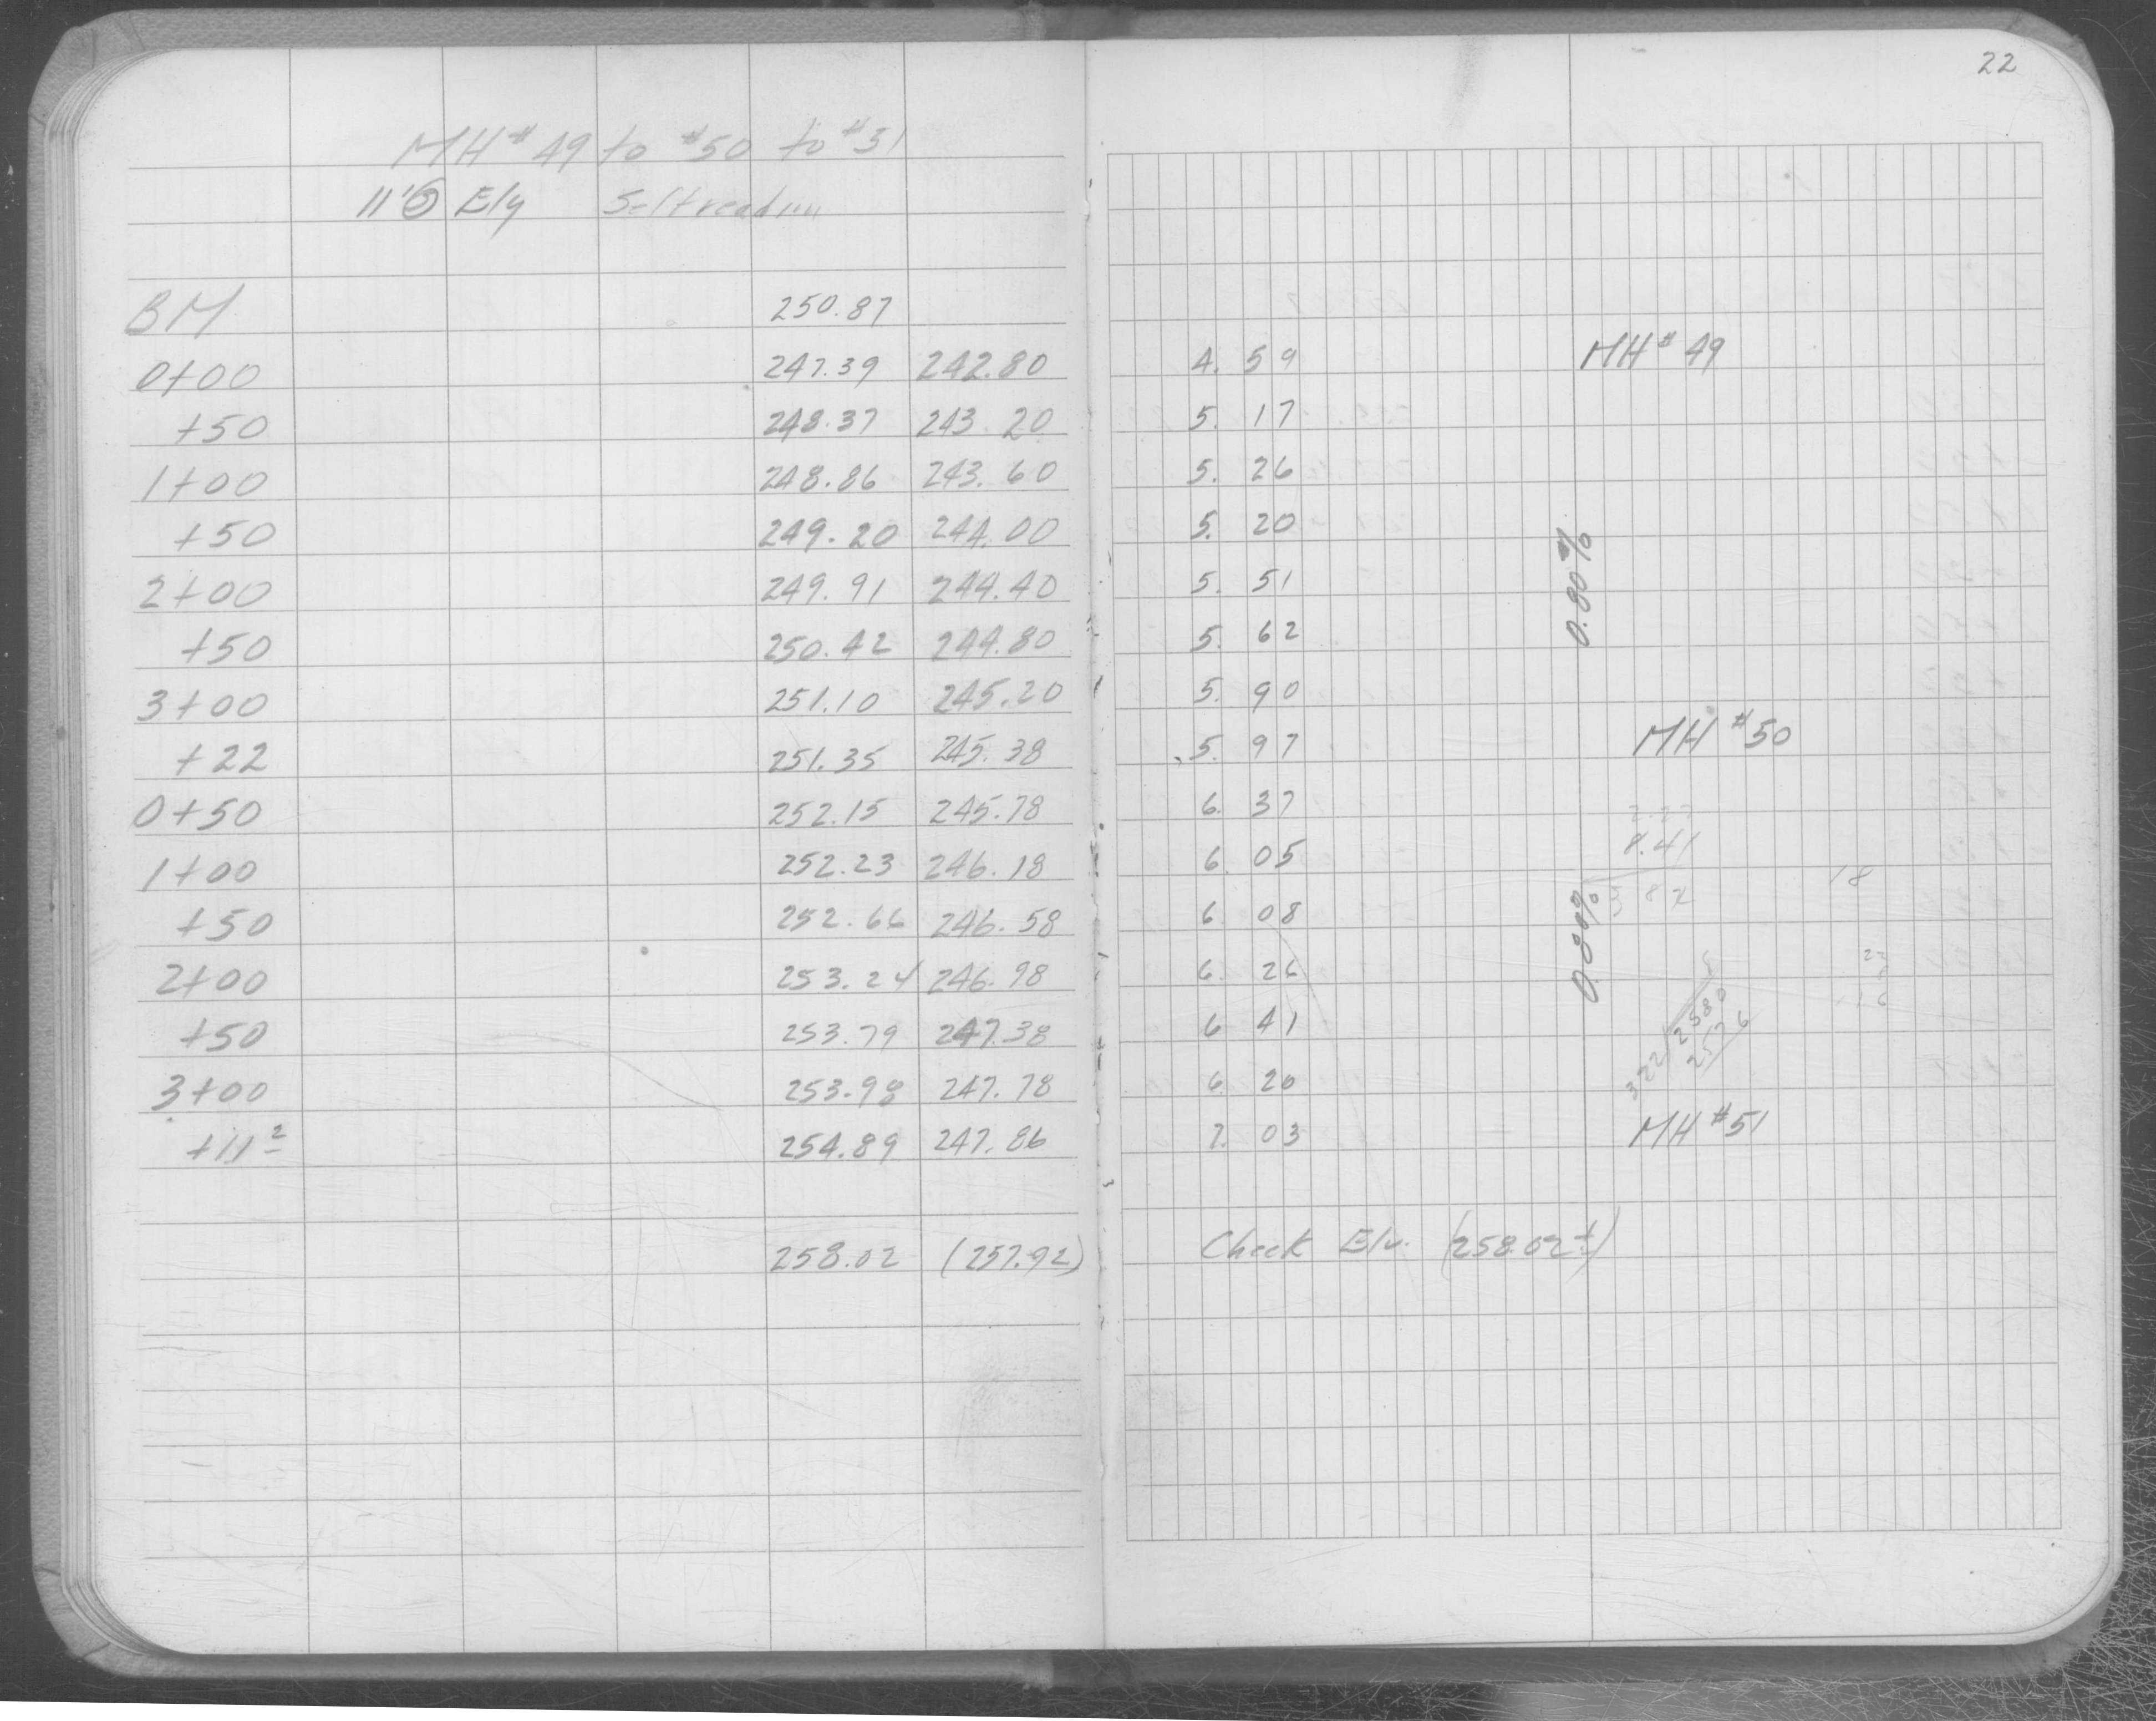 22
MH # 49 to # 50 to # 51
11' Ely Self reading
BM 250.87
0+00 247.39 242.80 4.59 MH # 49
+50 248.37 243.20 5.17
1+00 248.86 243.60 5.26
+50 249.20 244.00 5.20
2+00 249.91 244.40 5.51
0.80%
+50 250.42 244.80 5.62
3+00 251.10 245.20 5.90
+22 251.35 245.38 5.97 MH # 50
0+50 252.15 245.78 6.37
1+00 252.23 246.18 6.05
8.41
18
3 82
+50 252.66 246.58 6.08
0.80%
2+00 253.24 246.98 6.26
+50 253.79 247.38 6.41
322 2580
2576
3+00 253.98 247.78 6.20
+11 2 254.89 247.86 7.03 MH # 51
258.02 (257.92) Check Elv. (258.02±)